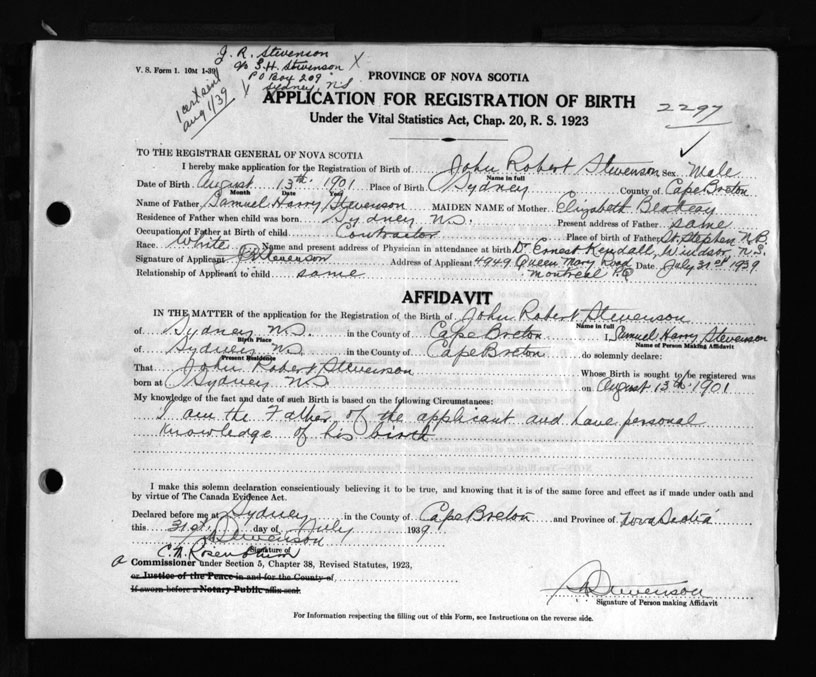 J. R. Stevenson
c/o S. H. Stevenson X
V. S. Form 1. 10M 1-39
PO Box 209
Sydney, N.S.
1 cert sent
Aug 1/39
PROVINCE OF NOVA SCOTIA
APPLICATION FOR REGISTRATION OF BIRTH
2297
Under the Vital Statistics Act, Chap. 20, R. S. 1923
TO THE REGISTRAR GENERAL OF NOVA SCOTIA
I hereby make application for the Registration of Birth of John Robert Stevenson Sex Male
Name in full
Date of Birth August 13th 1901 Place of Birth Sydney County of Cape Breton
Month Date Year
Name of Father Samuel Harry Stevenson MAIDEN NAME of Mother Elizabeth
Residence of Father when child was born Sydney N.S. Present address of Father same
Occupation of Father at Birth of child Contractor Place of birth of Father St. Stephen N.B.
Race White Name and present address of Physician in attendance at birth Dr Ernest Kendall, Windsor N.S.
Signature of Applicant J R Stevenson Address of Applicant 4949 Queen Mary Road Date July 31st 1939
Relationship of Applicant to child same Montreal P.Q
AFFIDAVIT
IN THE MATTER of the application for the Registration of the Birth of John Robert Stevenson
Name in full
of Sydney N.S. in the County of Cape Breton I Samuel Harry Stevenson
Birth Place Name of Person Making Affidavit
of Sydney N.S. in the County of Cape Breton do solemnly declare:
Present Residence
That John Robert Stevenson Whose Birth is sought to be registered was
born at Sydney N.S. on August 13th 1901
My knowledge of the fact and date of such Birth is based on the following Circumstances:
I am the Father of the applicant and have personal
knowledge of his birth
I make this solemn declaration conscientiously believing it to be true, and knowing that it is of the same force and effect as if made under oath and
by virtue of The Canada Evidence Act.
Declared before me at Sydney in the County of Cape Breton and Province of Nova Scotia
this 31st day of July 1939
Stevenson
Signature of
C. M. Rosenblum
a Commissioner under Section 5, Chapter 38, Revised Statutes, 1923,
or Justice of the Peace in and for the County of
If sworn before a Notary Public affix seal.
S. H. Stevenson
Signature of Person making Affidavit
For Information respecting the filling out of this Form, see Instructions on the reverse side.